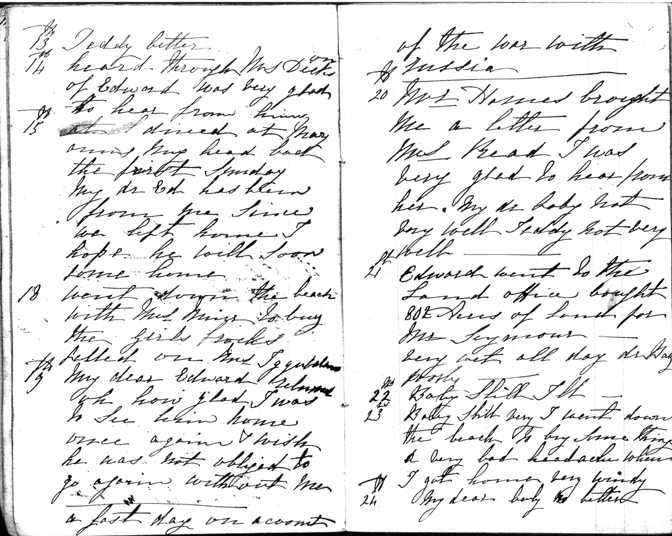 13 Teddy better
14 heard through Mrs
of Edward was very glad
to hear from him
15 I dined at Mary
anns My head bad
the first Sunday
My dr Ed has been
from me since
we left home I
hope he will soon
come home
18 went down the beach
with Mrs to buy
the girls frocks
called on Mrs
19 My dear Edward returned
oh how glad I was
to see him home
once again I wish
he was not obliged to
go again without me
a fast day on account
of the war with
Russia
20 Mr Homes brought
me a letter from
Mrs Read I was
very glad to hear from
her. My dr baby not
very well Teddy not very
well
21 Edward went to the
Land office bought
802 Acres of Land for
Mr Seymour
very wet all day dr Bab
poorly
22 Baby Still Ill
23 Baby Still very I went down
the beach To by some thing
a very bad headache when
I got home very windy
24 My dear baby no better